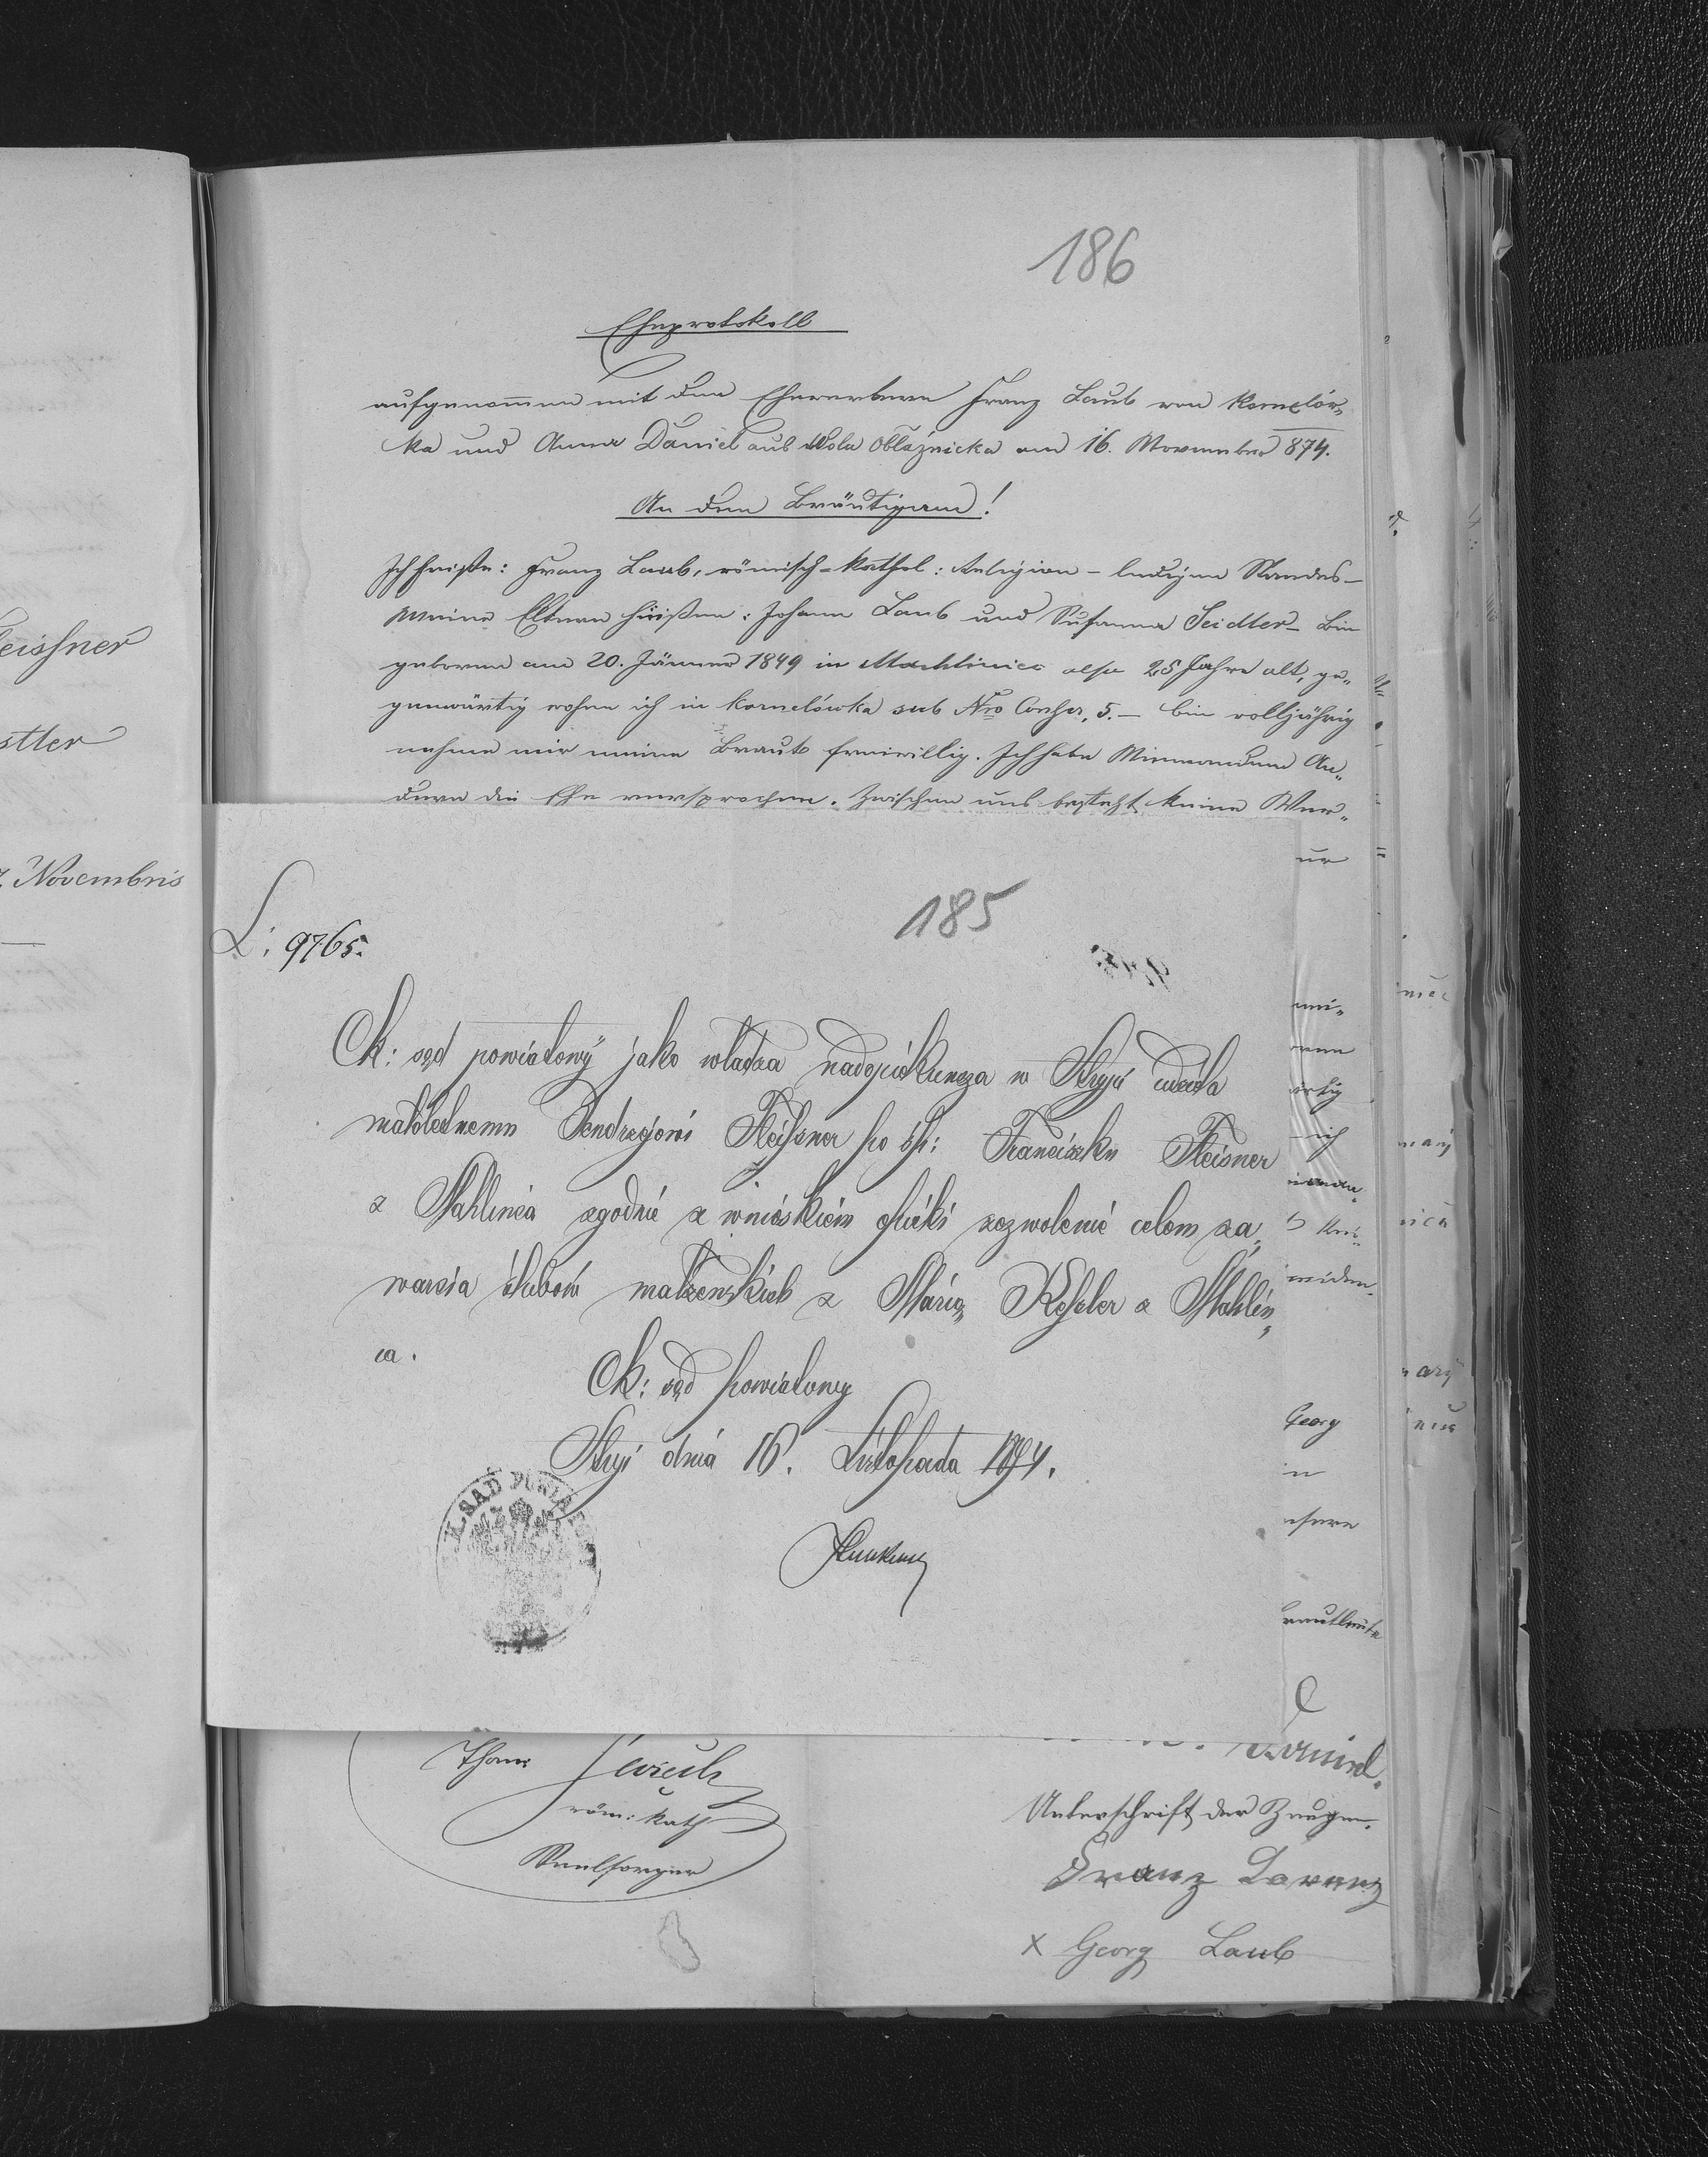 186
Eheprotokoll
aufgenommen mit den Ehewerbern Franz Laub von Kornelów„
ka und Anna Daniel aus Wola Obłaźnicka am 16. November 874.
An den Bräutigam!
Ich heiße: Franz Laub, römisch-kathol: Religion – ledigen Standes –
Meine Eltern heißen: Johann Laub und Susanna Seidler – Bin
geboren am 20. Jänner 1849 in Machliniec also 25 Jahre alt, ge„
genwärtig wohne ich in Kornelówka sub Nro Conscr. 5. – bin volljährig
nehme mir meine Braut freiwillig. Ich habe Niemandem An„
dern die Ehe versprochen. Zwischen uns besteht keine Ver„
eissner
stler
Novembris
185
L: 9765.
Ck: sąd powiatowy jako władza nadopiekuńcza w Stryju udziela
małoletnemu Jendrzejowi Fleissner po śp: Franciszku Fleisner
z Mahlinca zgodnie z wnioskiem opieki zezwolenie celem za„
warcia ślubów małżenskich z Marią Kessler z Mahlin„
ca.
Ck: sąd powiatowy
Stryj dnia 16. Listopada 1874.
K. SĄD POWIA
Georg
in
rautleute
Daniel
röm: kath
Seelsorger
Unterschrift der Zeugen.
Franz Lorenz
x Georg Laub